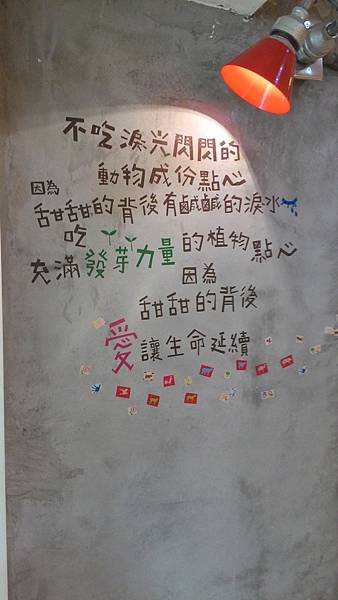 不吃淚光閃閃的
動物成份點心
因為
甜甜的背後有鹹鹹的淚水
吃發芽力量的植物點心
充滿
因為
甜甜的背後
愛讓生命延續